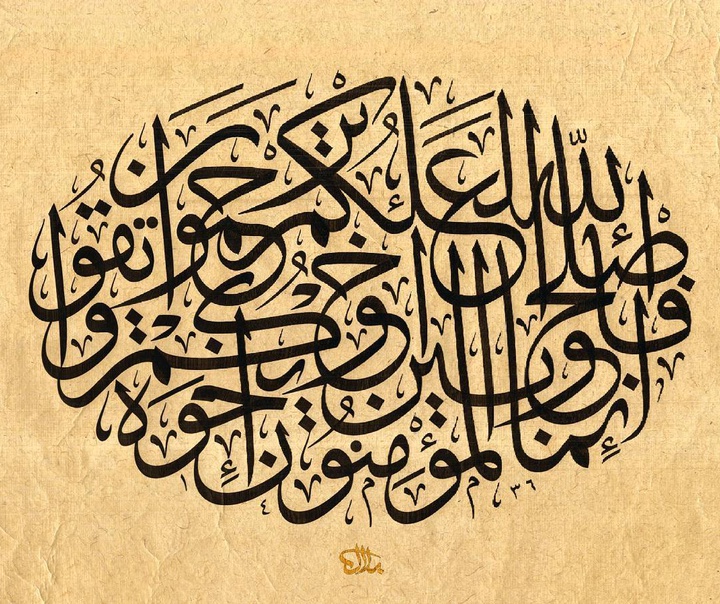 إنما المؤمنون إخوة
فأصلحوا بين أخويكم واتقوا
الله لعلكم ترحمون
١٤٣٦
بلال